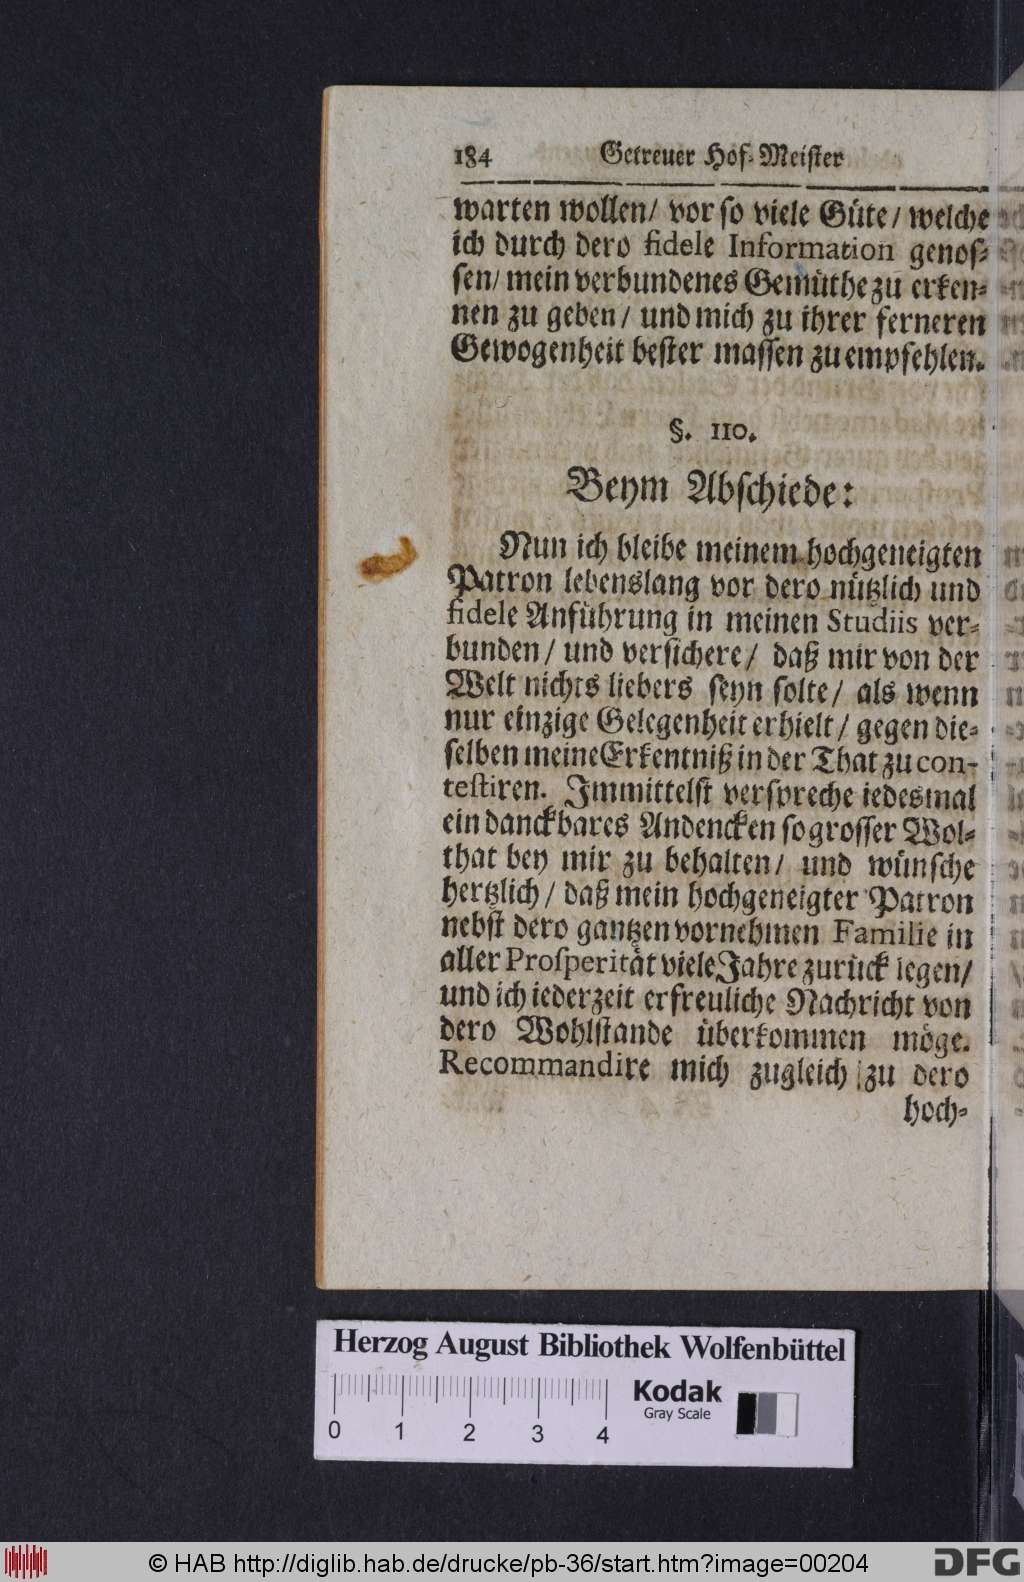 184 Getreuer Hof-Meister
warten wollen/ vor so viele Güte/ welche
ich durch dero fidele Information genos-
sen/ mein verbundenes Gemüthe zu erken-
nen zu geben/ und mich zu ihrer ferneren
Gewogenheit bester massen zu empfehlen.
§. 110.
Beym Abschiede:
Nun ich bleibe meinem hochgeneigten
Patron lebenslang vor dero nützlich und
fidele Anführung in meinen Studiis ver-
bunden/ und versichere/ daß mir von der
Welt nichts liebers seyn solte/ als wenn
nur einzige Gelegenheit erhielt/ gegen die-
selben meine Erkentniß in der That zu con-
testiren. Immittelst verspreche iedesmal
ein danckbares Andencken so grosser Wol-
that bey mir zu behalten/ und wünsche
hertzlich/ daß mein hochgeneigter Patron
nebst dero gantzen vornehmen Familie in
aller Prosperität viele Jahre zurück legen/
und ich iederzeit erfreuliche Nachricht von
dero Wohlstande überkommen möge.
Recommandire mich zugleich zu dero
hoch-
Herzog August Bibliothek Wolfenbüttel
Kodak
Gray Scale
0 1 2 3 4
© HAB http://diglib.hab.de/drucke/pb-36/start.htm?image=00204
DFG